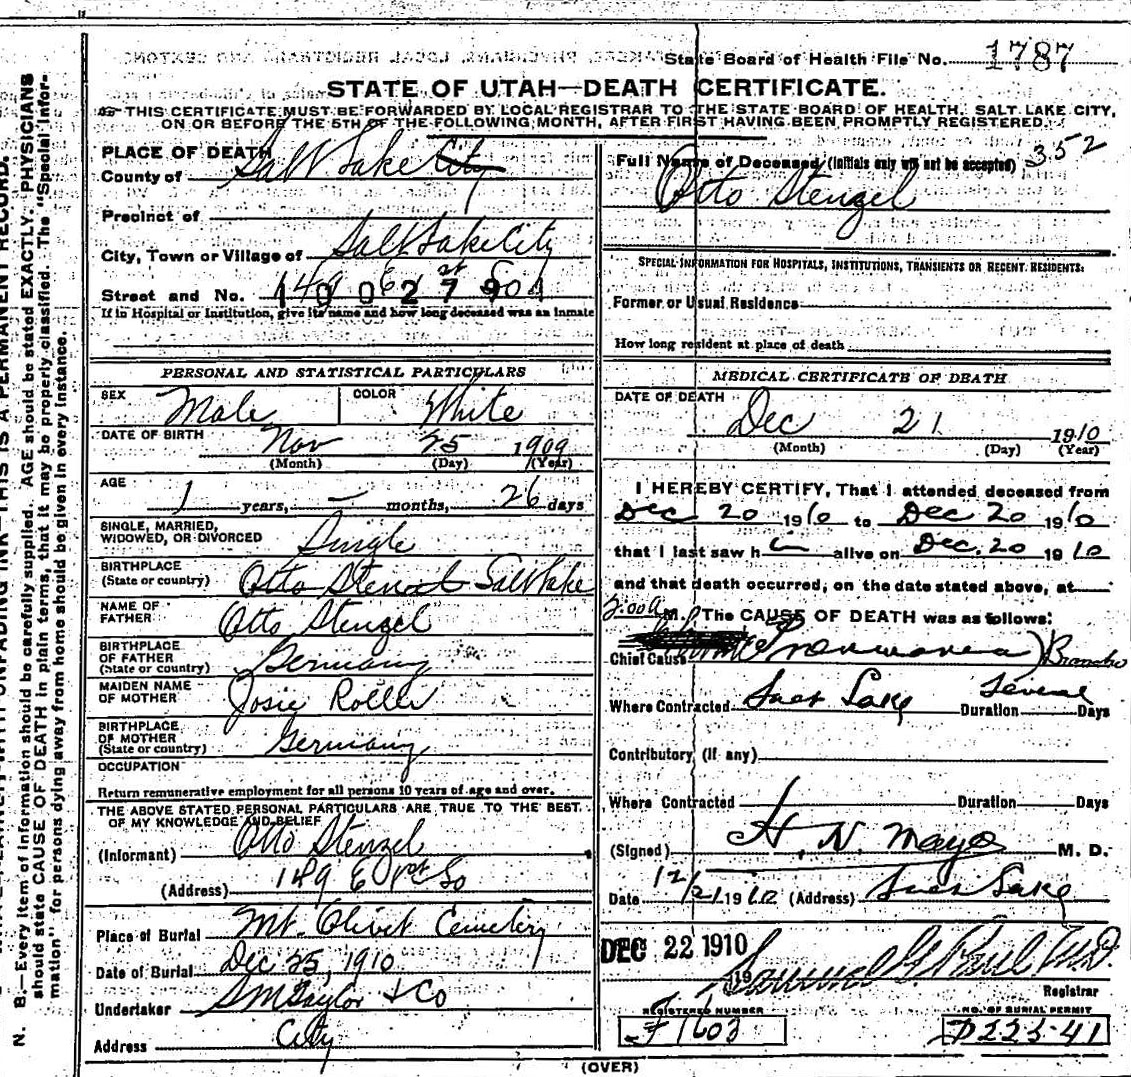 State Board of Health File No. 1787
STATE OF UTAH—DEATH CERTIFICATE.
THIS CERTIFICATE MUST BE FORWARDED BY LOCAL REGISTRAR TO THE STATE BOARD OF HEALTH, SALT LAKE CITY,
ON OR BEFORE THE 5TH OF THE FOLLOWING MONTH, AFTER FIRST HAVING BEEN PROMPTLY REGISTERED.
PLACE OF DEATH
County of Salt Lake City
Precinct of
City, Town or Village of Salt Lake City
Street and No.
If in Hospital or Institution, give its name and how long deceased was an inmate
PERSONAL AND STATISTICAL PARTICULARS
SEX Male COLOR White
DATE OF BIRTH Nov 25 1909
(Month) (Day) (Year)
AGE 1 years, — months, 26 days
SINGLE, MARRIED,
WIDOWED, OR DIVORCED Single
BIRTHPLACE
(State or country) Otto Stenzel Salt Lake
NAME OF
FATHER Otto Stenzel
BIRTHPLACE
OF FATHER
(State or country) Germany
MAIDEN NAME
OF MOTHER Josie Roller
BIRTHPLACE
OF MOTHER
(State or country) Germany
OCCUPATION
Return remunerative employment for all persons 10 years of age and over.
THE ABOVE STATED PERSONAL PARTICULARS ARE TRUE TO THE BEST
OF MY KNOWLEDGE AND BELIEF
(Informant) Otto Stenzel
(Address) 149 E 1st So
Place of Burial Mt. Olivet Cemetery
Date of Burial Dec 25, 1910
Undertaker S M Taylor & Co
Address City
Full Name of Deceased (Initials only will not be accepted) 352
Otto Stenzel
SPECIAL INFORMATION FOR HOSPITALS, INSTITUTIONS, TRANSIENTS OR RECENT RESIDENTS:
Former or Usual Residence
How long resident at place of death
MEDICAL CERTIFICATE OF DEATH
DATE OF DEATH Dec 21 1910
(Month) (Day) (Year)
I HEREBY CERTIFY, That I attended deceased from
Dec 20 1910 to Dec 20 1910
that I last saw him alive on Dec. 20 1910
and that death occurred, on the date stated above, at
2:00 a M. The CAUSE OF DEATH was as follows:
Chief Cause Pneumonia) Broncho
Where Contracted Salt Lake Duration Several Days
Contributory (if any)
Where Contracted Duration Days
(Signed) H. N. Mayo M. D.
Date 12/21 1910 (Address) Salt Lake
DEC 22 1910
19 Samuel G Paul M.D.
Registrar
REGISTERED NUMBER
1603
NO. OF BURIAL PERMIT
D223-41
(OVER)
N. B.—Every item of information should be carefully supplied. AGE should be stated EXACTLY. PHYSICIANS
should state CAUSE OF DEATH in plain terms, that it may be properly classified. The "Special Infor-
mation" for persons dying away from home should be given in every instance.